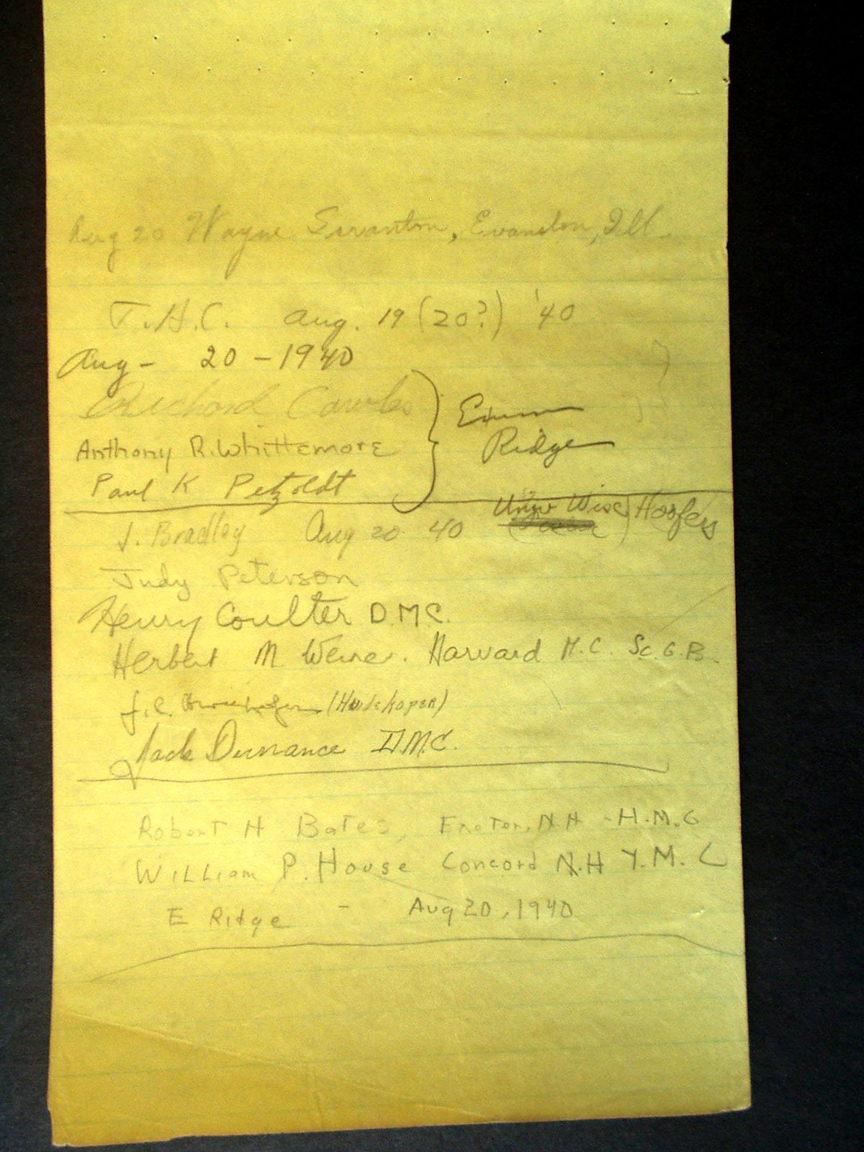 Aug 20 Wayne Swanton, Evanston, Ill.
T.H.C. Aug. 19 (20?) '40
Aug - 20 - 1940
Richard Cowles
Anthony R. Whittemore
Paul K Petzoldt
Ridge
J. Bradley Aug 20 40 Univ Wisc Hoofers
Judy Peterson
Henry Coulter D.M.C.
Herbert M Weine. Harvard M.C. Sc. G. B.
J.C.
Jack Durrance D.M.C.
Robert H Bates, Exeter, N H - H.M.C
William P. House Concord N.H Y.M.C
E Ridge - Aug 20, 1940